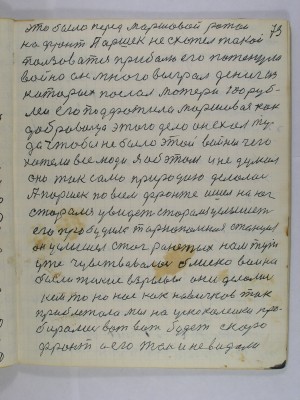 это было перед маршовой ротой 75
на фронт Паршек не схотел такой
пользоватся прибыль его потянула
война он много выиграл денег из
которых послал матери 100 руб-
лей его поддержила маршевая как
добравольца этого дела он ехал ту
да чтобы не было этой войны чего
хотели все люди я об этом и не думал
оно так само природию делалос
А паршек по всем фронте ишел на юг
старался увидет старался услышет
его пробудило тарнопольская станция
он услышел стог раненых нам тут
уже чувствавалос близко война
были такие взрывы они делали
нам то но нас как новичков так
приблетала мы на узкоколейки про-
бирались вот вот будет скоро
фронт а его мы и не видали